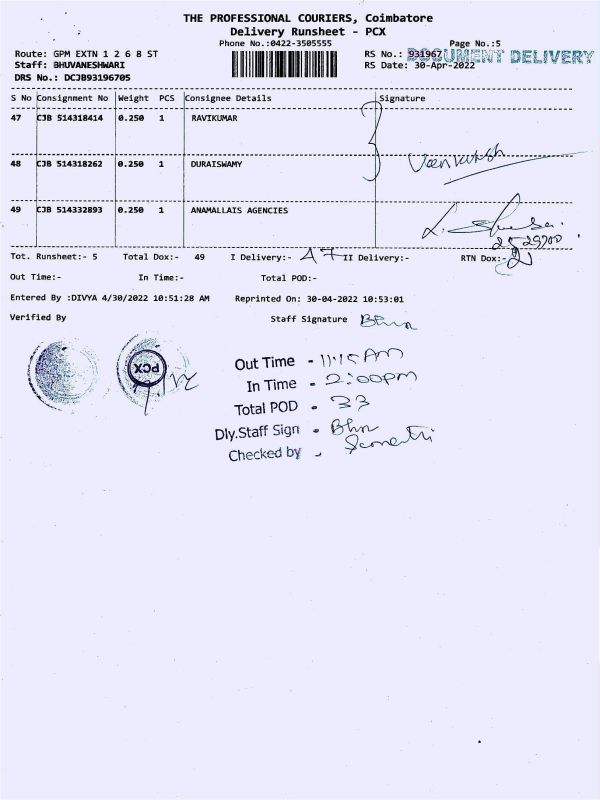 THE PROFESSIONAL COURIERS, Coimbatore
Delivery Runsheet - PCX
Phone No.:0422-3505555 Page No.:5
Route: GPM EXTN 1 2 6 8 ST RS No.: 931967 DOCUMENT DELIVERY
Staff: BHUVANESHWARI RS Date: 30-Apr-2022
DRS No.: DCJB93196705
S No Consignment No Weight PCS Consignee Details Signature
47 CJB 514318414 0.250 1 RAVIKUMAR
48 CJB 514318262 0.250 1 DURAISWAMY Venkatesh
49 CJB 514332893 0.250 1 ANAMALLAIS AGENCIES
Tot. Runsheet:- 5 Total Dox:- 49 I Delivery:- 47 II Delivery:- RTN Dox:- 2
Out Time:- In Time:- Total POD:-
Entered By :DIVYA 4/30/2022 10:51:28 AM Reprinted On: 30-04-2022 10:53:01
Verified By Staff Signature Bhu
PCX
Out Time - 11:15 AM
In Time - 2:00pm
Total POD - 33
Dly.Staff Sign - Bhu
Checked by -